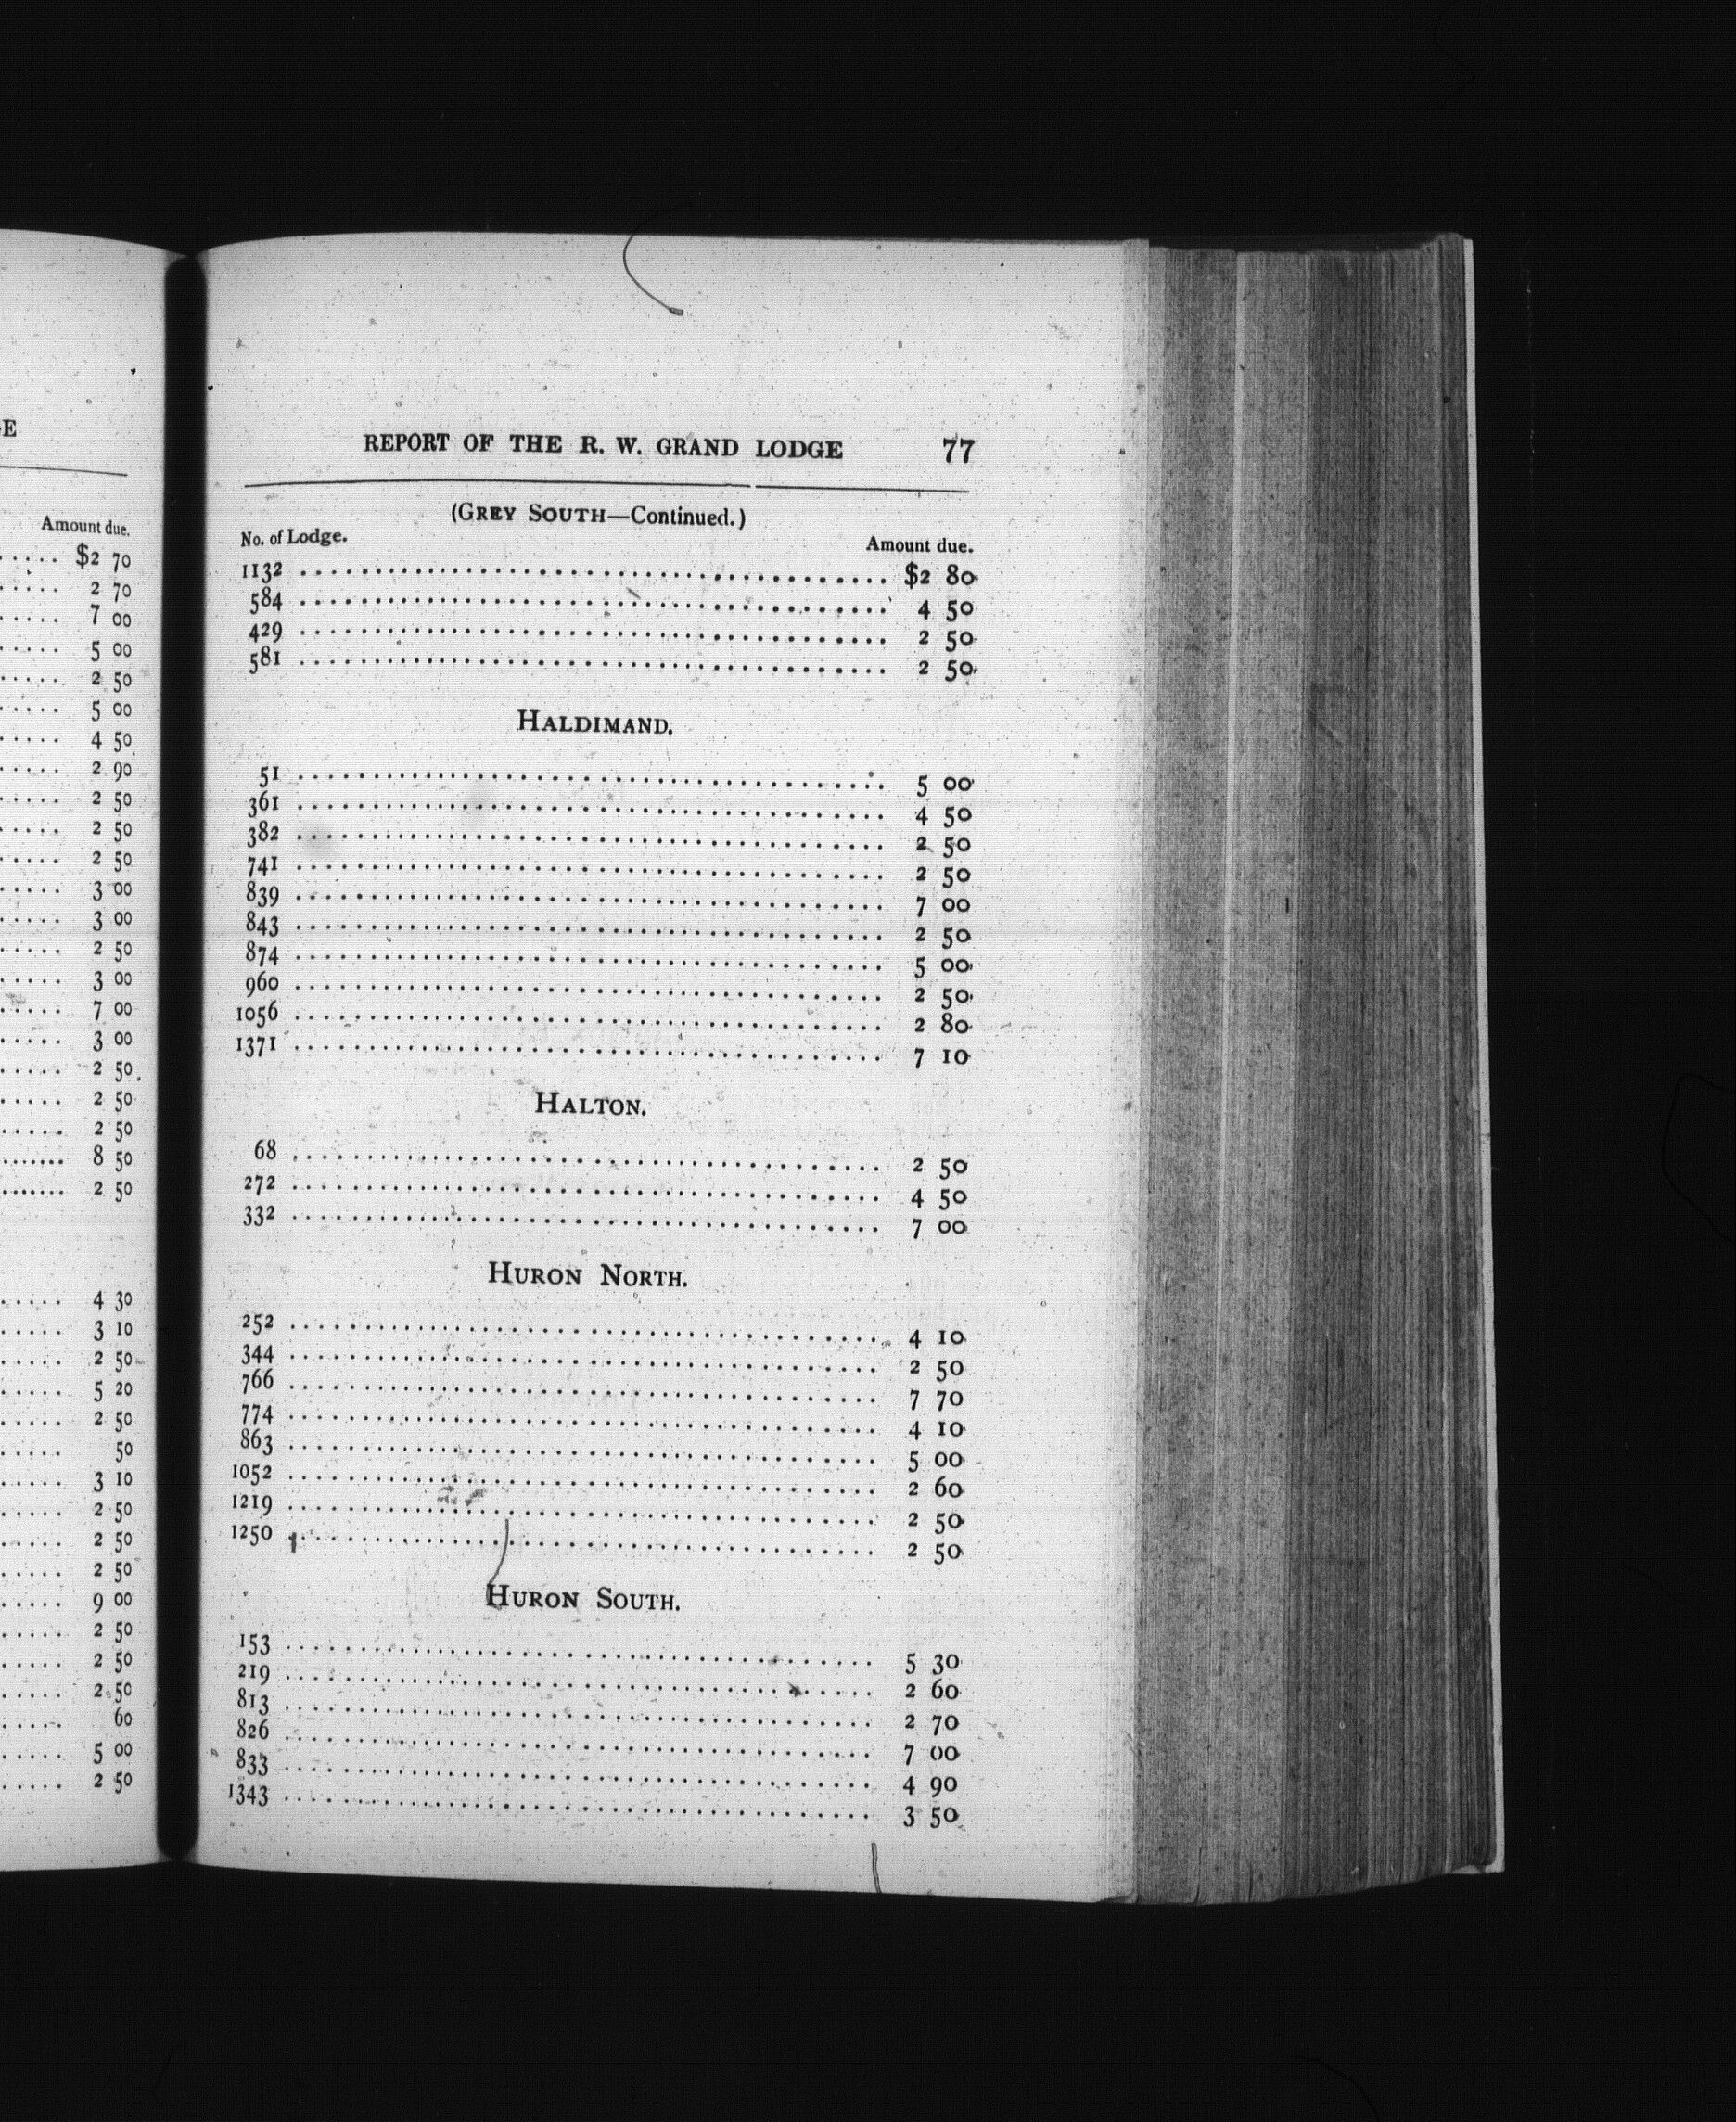 E
Amount due.
..... $2 70
..... 2 70
..... 7 00
..... 5 00
..... 2 50
..... 5 00
..... 4 50
..... 2 90
..... 2 50
..... 2 50
..... 2 50
..... 3 00
..... 3 00
..... 2 50
..... 3 00
..... 7 00
..... 3 00
..... 2 50
..... 2 50
..... 2 50
..... 8 50
..... 2 50
..... 4 30
..... 3 10
..... 2 50
..... 5 20
..... 2 50
..... 50
..... 3 10
..... 2 50
..... 2 50
..... 2 50
..... 9 00
..... 2 50
..... 2 50
..... 2 50
..... 60
..... 5 00
..... 2 50
REPORT OF THE R. W. GRAND LODGE 77
(GREY SOUTH—Continued.)
No. of Lodge. Amount due.
1132 ........ $2 80
584 ........ 4 50
429 ........ 2 50
581 ........ 2 50
HALDIMAND.
51 ........ 5 00
361 ........ 4 50
382 ........ 2 50
741 ........ 2 50
839 ........ 7 00
843 ........ 2 50
874 ........ 5 00
960 ........ 2 50
1056 ........ 2 80
1371 ........ 7 10
HALTON.
68 ........ 2 50
272 ........ 4 50
332 ........ 7 00
HURON NORTH.
252 ........ 4 10
344 ........ 2 50
766 ........ 7 70
774 ........ 4 10
863 ........ 5 00
1052 ........ 2 60
1219 ........ 2 50
1250 ........ 2 50
HURON SOUTH.
153 ........ 5 30
219 ........ 2 60
813 ........ 2 70
826 ........ 7 00
833 ........ 4 90
1343 ........ 3 50